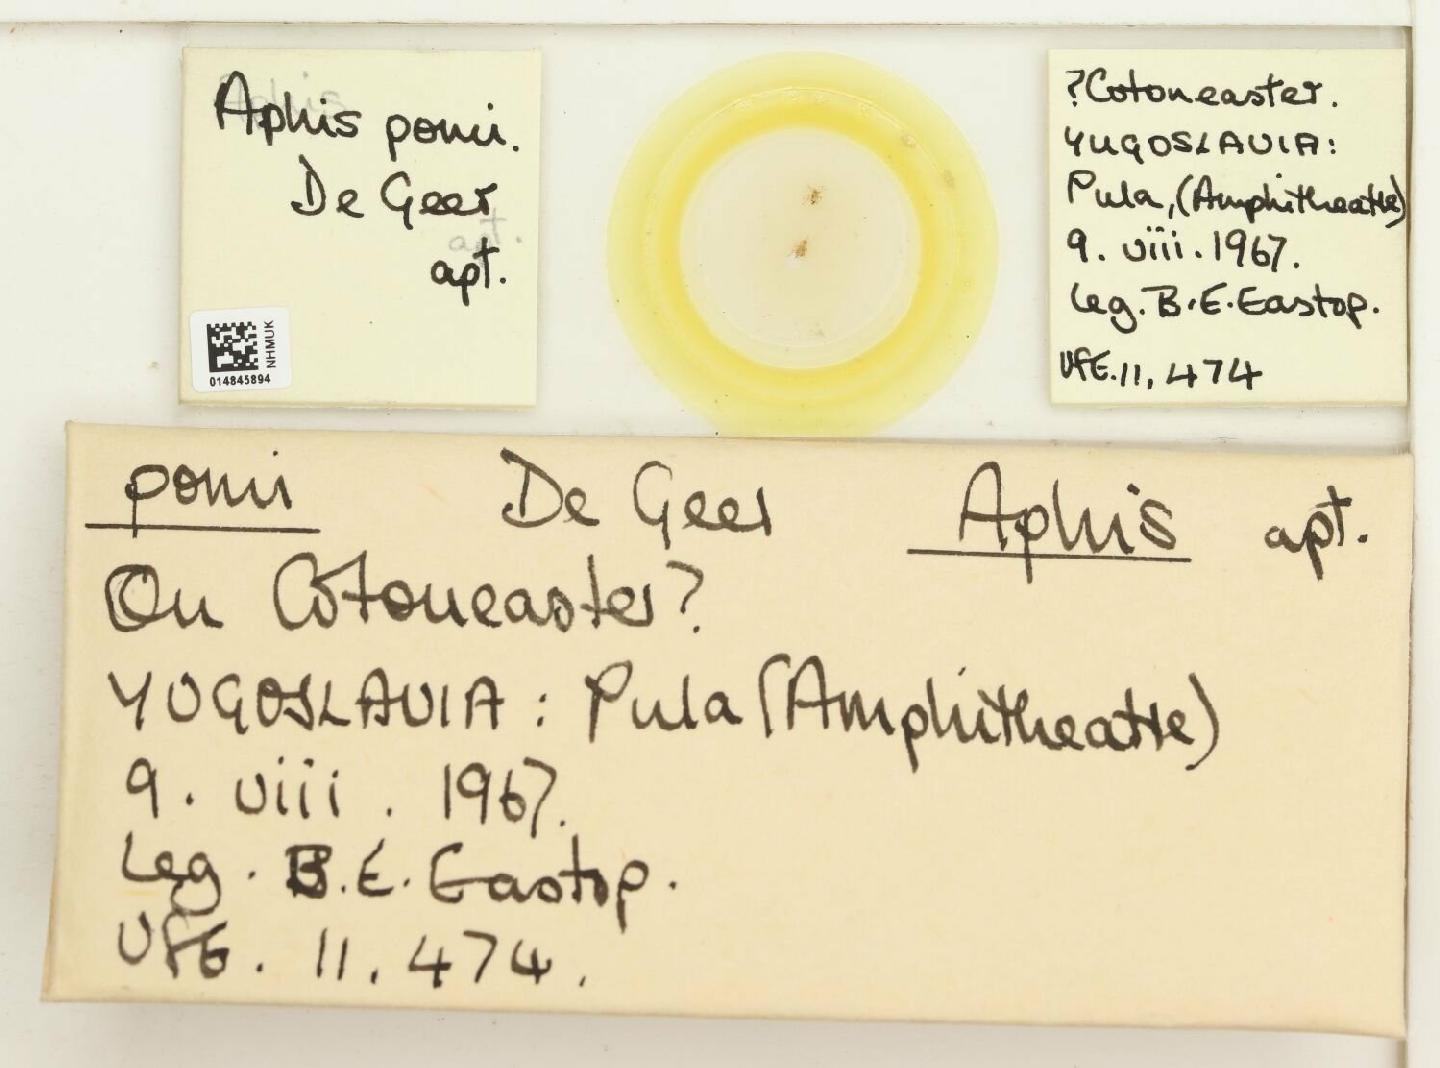 Aphis pomi.
De Geer
apt.
NHMUK
014845894
?Cotoneaster.
YUGOSLAVIA:
Pula, (Amphitheatre)
9. viii. 1967.
leg. B.E. Eastop.
VFE. 11, 474
pomi De Geer Aphis apt.
On Cotoneaster?
YUGOSLAVIA: Pula (Amphitheatre)
9. viii. 1967.
Leg. B.E. Eastop.
VFE. 11. 474.